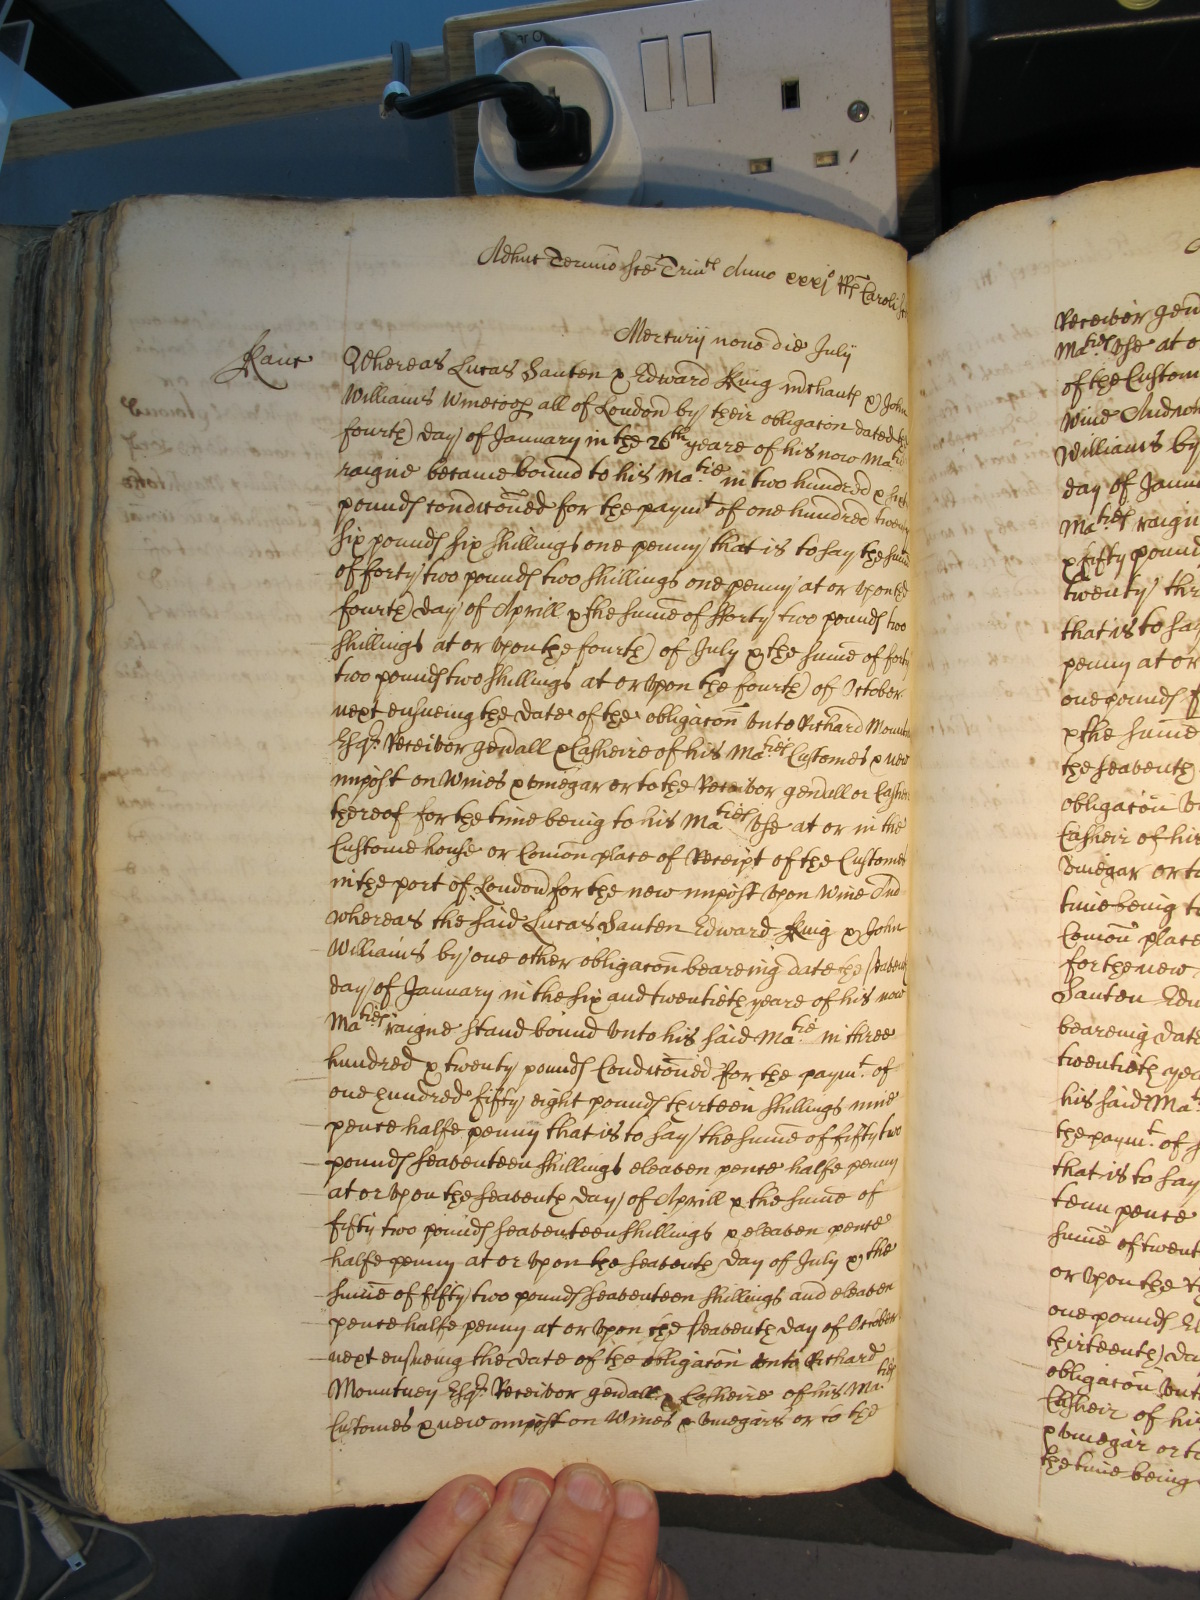 Adhuc Termio Sce Trinte Anno xxxjo RRs Caroli
Mercurij nono die July
Kanc
Whereas Lucas Santen & Edward King mchants & John
Williams Winecoop all of London by their obligacon dated the
fourth day of January in the 26th yeare of his now Maties
raigne became bound to his Matie in two hundred &
pounds condiconed for the paymt of one hundred twenty
six pounds six shillings one penny that is to say the sume
of forty two pounds two shillings one penny at or vpon the
fourth day of Aprill & the sume of fforty two pounds two
shillings at or vpon the fourth of July & the sume of forty
two pounds two shillings at or vpon the fourth of October
next ensueing the date of the obligacon vnto Richard Mountney
Esqr Receivor genall & Casheire of his Maties Customes & new
impost on Wines & vinegar or to the Receivor genall or Casheire
thereof for the time being to his Maties vse at or in the
Custome house or Comon place of Receipt of the Customes
in the port of London for the new impost vpon Wine And
whereas the said Lucas Santen Edward King & John
Williams by one other obligacon beareing date the seaventh
day of January in the six and twentieth yeare of his now
Maties raigne stand bound vnto his said Matie in three
hundred & twenty pounds Condiconed for the paymt of
one hundred fifty eight pounds thirteen shillings nine
pence halfe penny that is to say the sume of fifty two
pounds seaventeen shillings eleaven pence halfe penny
at or vpon the seaventh day of Aprill & the sume of
fifty two pounds seaventeen shillings & eleaven pence
halfe penny at or vpon the seaventh day of July & the
sume of fifty two pounds seaventeen shillings and eleaven
pence halfe penny at or vpon the seaventh day of October
next ensueing the date of the obligacon vnto Richard
Mountney Esqr Receivor genall & Casheire of his Maties
Customes & new impost on Wines & vinegars or to the
Receivor
Maties vse at o
of the Custom
Wine And
Williams by
day of Janu
Maties raign
& fifty pound
twenty thr
that is to say
penny at or
one pounds
& the sume
the seaventh
obligacon
Casheir of his
vinegar or to
time being t
Comon place
for the new
Santen Edw
beareing date
twentieth yea
his said Ma
the paymt of
that is to say
tenn pence
sume of twent
or vpon the
one pounds
thirteenth da
obligacon vnt
Casheir of hi
& vinegar or t
the time being